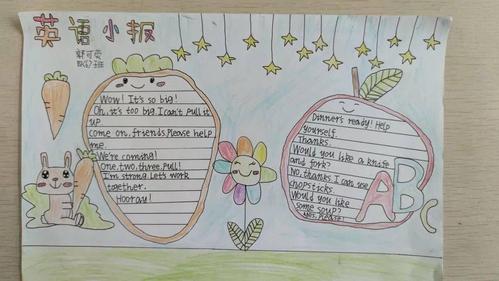 英语小报
Wow! It's so big!
Oh, it's too big. I can't pull it
up.
come on, friends. Please help
me.
We're coming!
One, two, three, pull!
I'm strong. Let's work
together.
Hooray!
Dinner's ready! Help
yourself.
Thanks.
Would you like a knife
and fork?
No, thanks. I can use
chopsticks.
Would you like
some soup?
Yes, please
ABC